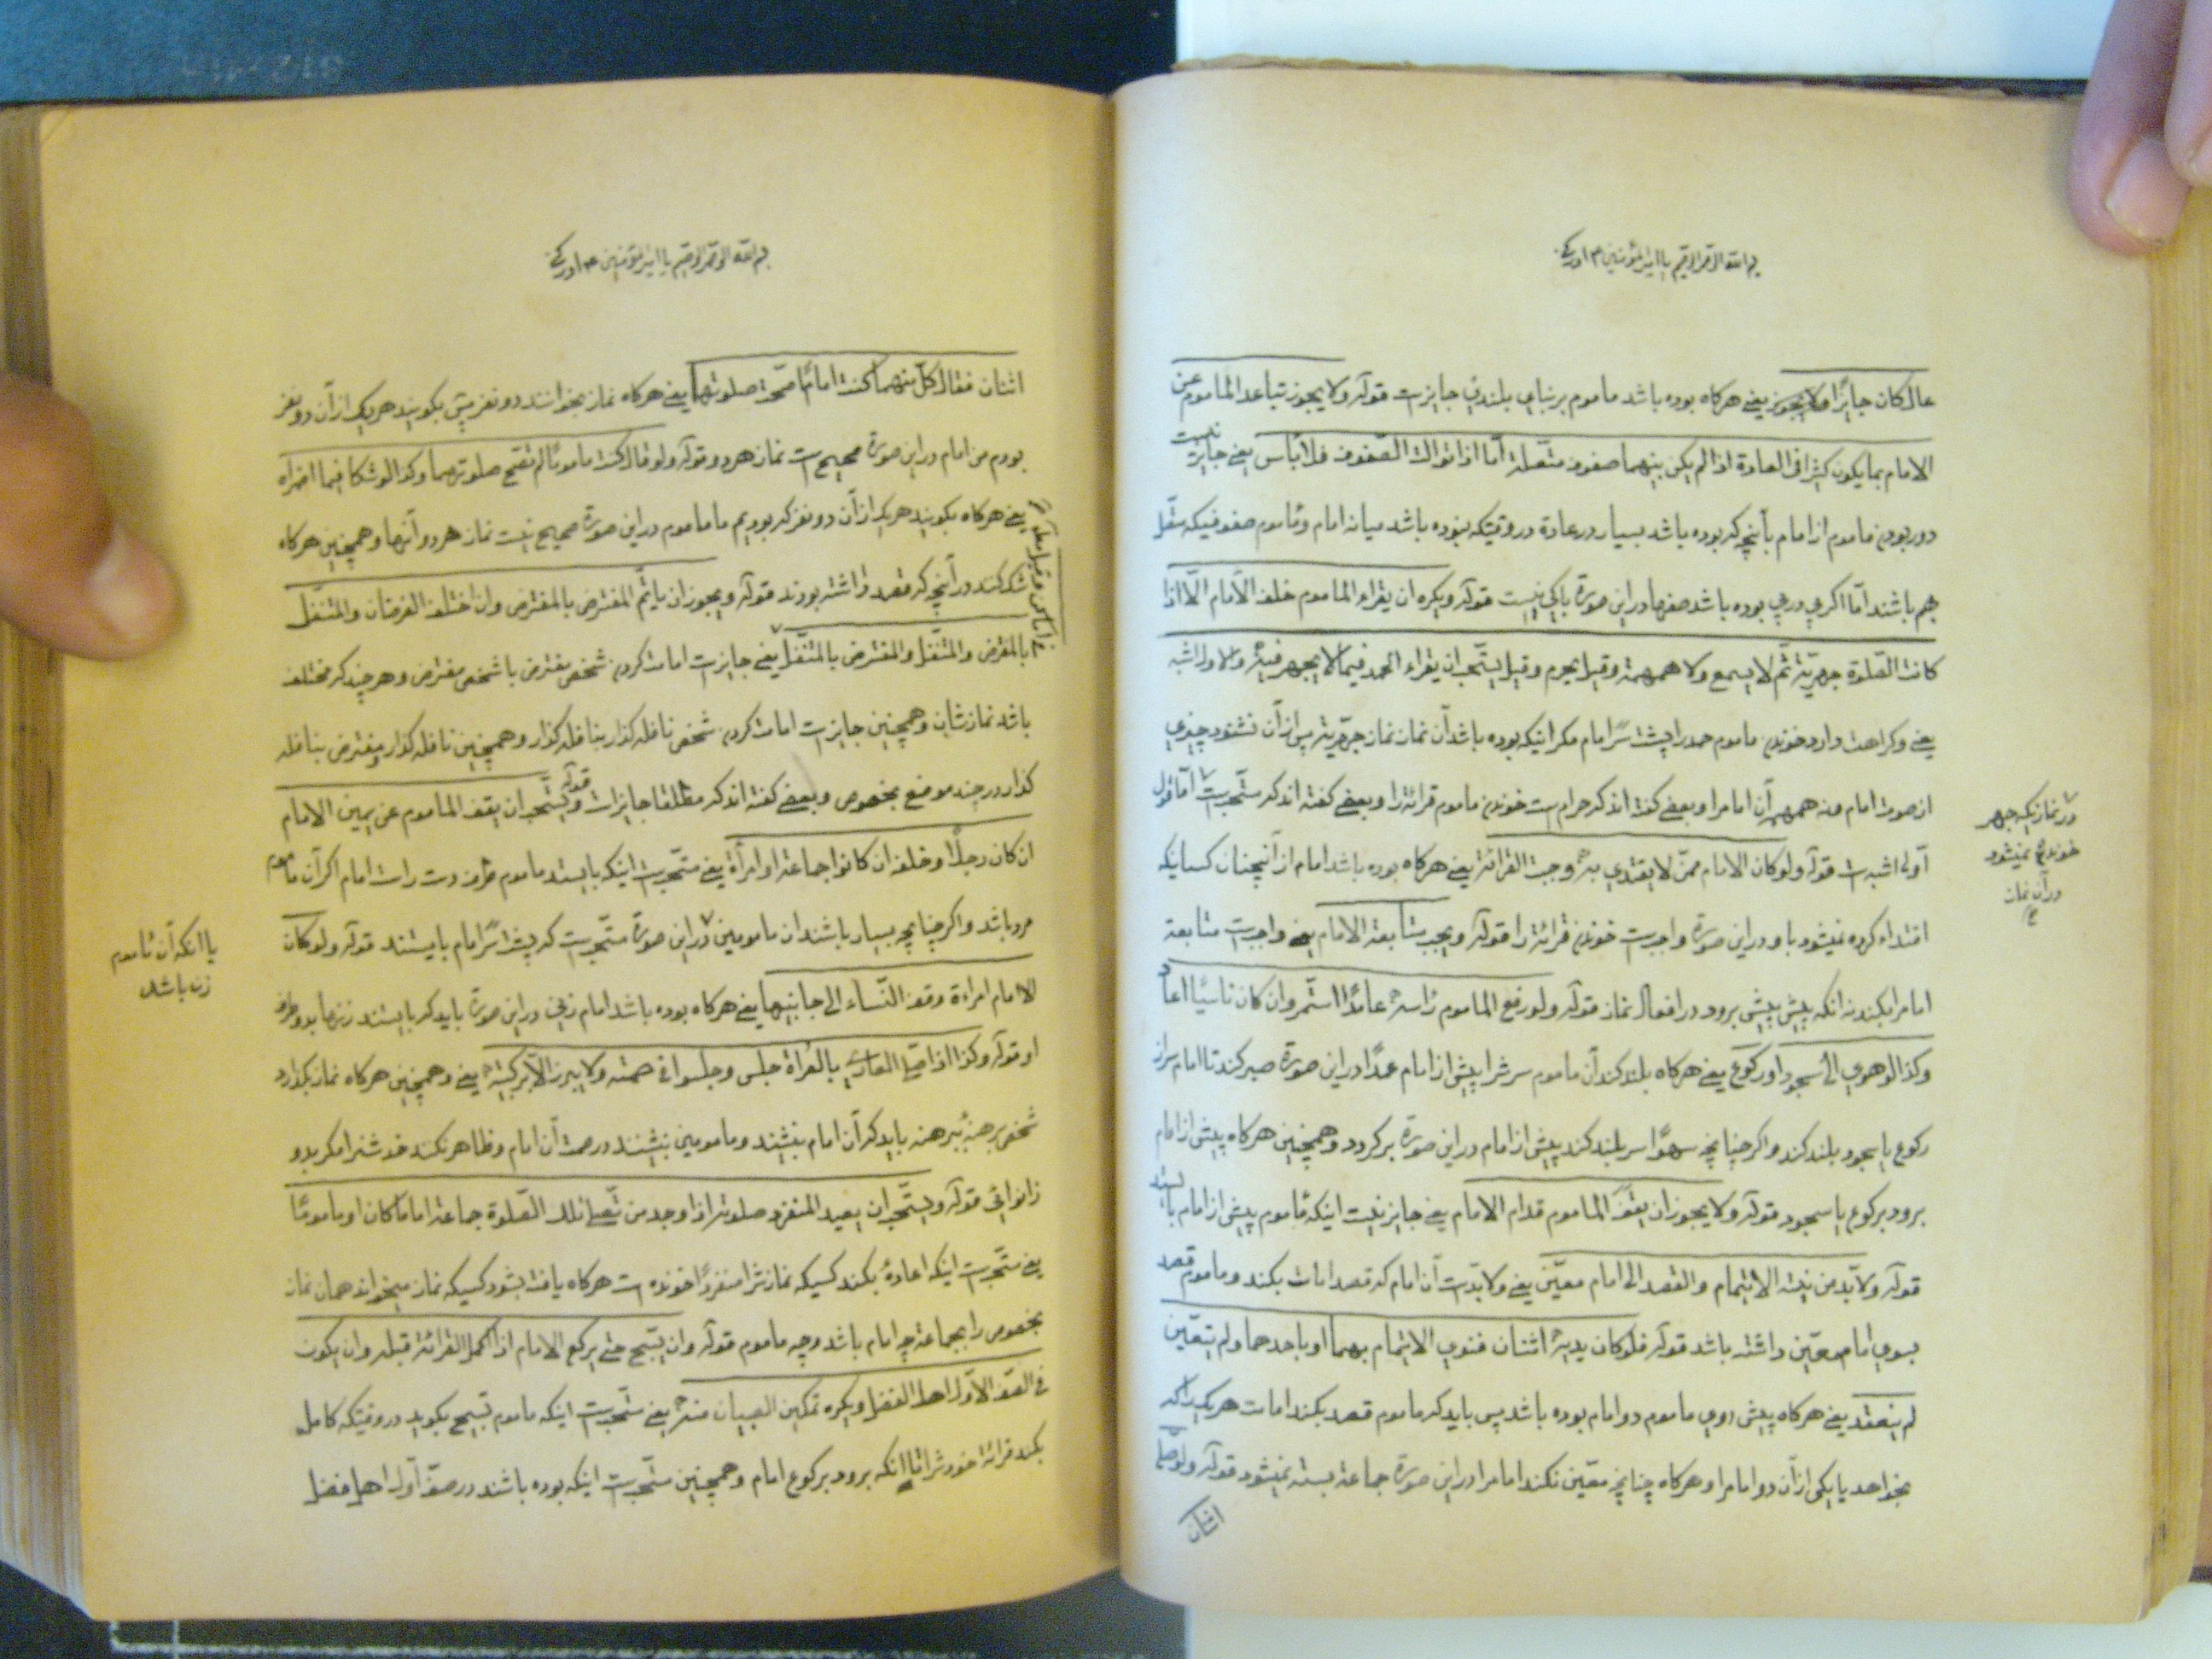 بسم الله الرحمن الرحیم یا امیر المؤمنین ع ادرکنی
عال کان جایزا ولا یجوز یعنی هرکاه بوده باشد ماموم بر بنای بلندی جایزست قوله ولا یجوز تباعد الماموم عن
الامام بما یکون کثیرا فی العادة اذا لم یکن بینهما صفوف متصلة امّا اذا توالت الصّفوف فلا بأس یعنی جایز نیست
دور بودن ماموم از امام بآنچه که بوده باشد بسیار در عادة در وقتیکه نبوده باشد میانه امام و ماموم صفوفیکه متصل
بهم باشند امّا اکر پی در پی بوده باشد صفها در این صورة باکی نیست قوله ویکره ان یقراء الماموم خلف الامام الّا اذا
کانت الصّلوة جهریّة ثم لا یسمع ولا همهمة وقیل یحرم وقیل یستحب ان یقراء الحمد فیما لا یجهر فیه والاول اشبه
یعنی وکراهت دارد خوندن ماموم حمد را پشت سر امام مکر اینکه بوده باشد آن نماز نماز جهریّة پس از آن نشنود چیزی
از صوت امام ونه همهمه آن امامرا وبعضی کفته اند که حرام ست خوندن ماموم قرائة را وبعضی کفته اند که مستحب ست امّا قول
در نمازیکه جهر
خونده نمیشود
در آن نماز
اول اشبه ست قوله ولو کان الامام ممّن لا یقتدی به وجبت القرائة یعنی هرکاه بوده باشد امام از آنچنان کسانیکه
اقتداء کرده نمیشود باو در این صورة واجب ست خوندن قرائة را قوله ویجب متابعة الامام یعنی واجب ست متابعة
امامرا بکند نه انکه پیش پیش برود در افعال نماز قوله ولو رفع الماموم رأسه عامدًا استمر وان کان ناسیًا اعاد
وکذا لو هوی الی سجود او رکوع یعنی هرکاه بلند کند آن ماموم سرش را پیش از امام عمدًا در این صورة صبر کند تا امام سر از
رکوع یا سجود بلند کند واکر چنانچه سهوًا سر بلند کند پیش از امام در این صورة برکردد وهمچنین هرکاه پیش از امام
برود برکوع یا سجود قوله ولا یجوز ان یقف الماموم قدام الامام یعنی جایز نیست اینکه ماموم پیش از امام بایستد
قوله ولا بدّ من نیّة الایتمام والقصد الی امام معیّن یعنی ولا بدّست آن امام که قصد امامت بکند وماموم قصد
بسوی امام معیّن داشته باشد قوله فلو کان بین یدیه اثنان فنوی الایتمام بهما او باحدهما ولم یتعیّن
لم ینعقد یعنی هرکاه پیش روی ماموم دو امام بوده باشد پس باید که ماموم قصد بکند امامت هر یک را که
بخواهد یا یکی از آن دو امامرا وهرکاه چنانچه معیّن نکند امامرا در این صورة جماعة بسته نمیشود قوله ولو صلّی
اثنان
بسم الله الرحمن الرحیم یا امیر المؤمنین ع ادرکنی
اثنان فقال کلّ منهما کنت امامًا صحّت صلوتهما یعنی هرکاه نماز بخوانند دو نفر پس بکویند هریک از آن دو نفر
بودم من امام در این صورة صحیح ست نماز هر دو قوله ولو قال کنت مامومًا لم تصّح صلوتهما وکذا لو شکّا فیما اضمراه
یعنی هرکاه بکویند هریک از آن دو نفر که بودیم ما ماموم در این صورة صحیح نیست نماز هر دو آنها وهمچنین هرکاه
شک کنند در آنچه که قصد داشته بودند قوله ویجوز ان یأتمّ المفترض بالمفترض وان اختلف الفرضان والمتنفّل
بالمفترض والمتنفّل والمفترض بالمتنفّل یعنی جایزست امامت کردن شخص مفترض با شخص مفترض وهر چند که مختلف
باشد نمازشان وهمچنین جایزست امامت کردن شخص نافله کذار بنافله کذار وهمچنین نافله کذار بمفترض ومفترض بنافله
کذار در چند موضع بخصوص وبعضی کفته اند که مطلقا جایزست قوله ویستحب ان یقف الماموم عن یمین الامام
ان کان رجلًا وخلفه ان کانوا جماعة او امرأة یعنی مستحب ست اینکه بایستد ماموم طرف دست راست امام اکر آن ماموم
مرد باشد واکر چنانچه بسیار باشند ان مامومین در این صورة مستحب ست که پشت سر امام بایستند قوله ولو کان
یا آنکه آن ماموم
زن باشد
الامام امراءة وقف النّساء الی جانبیها یعنی هرکاه بوده باشد امام زنی در این صورة باید که بایستند زنها بدو طرف
او قوله وکذا اذا صلّی العاری بالعُراة جلس وجلسوا فی سمته ولا یبرز الّا برکبتیه یعنی وهمچنین هرکاه نماز بکذارد
شخص برهنه ببرهنه باید که آن امام بنشیند ومامومین بنشینند در سمت آن امام وظاهر نکند خودش را مکر بدو
زانوائی قوله ویستحب ان یعید المنفرد صلوته اذا وجد من یصلّی تلک الصّلوة جماعة امامًا کان او مامومًا
یعنی مستحب ست اینکه اعاده بکند کسیکه نمازش را منفردًا خونده ست هرکاه یافت بشود کسیکه نماز میخواند همان نماز
بخصوص را بجماعة چه امام باشد وچه ماموم قوله وان یسبّح حتی یرکع الامام اذا اکمل القرائة قبله وان یکون
فی الصّف الاوّل اهل الفضل ویکره تمکین الصبیان منه یعنی مستحب ست اینکه ماموم تسبیح بکوید در وقتیکه کامل
بکند قرائة خودش را تا انکه برود برکوع امام وهمچنین مستحب ست اینکه بوده باشند در صف اوّل اهل فضل